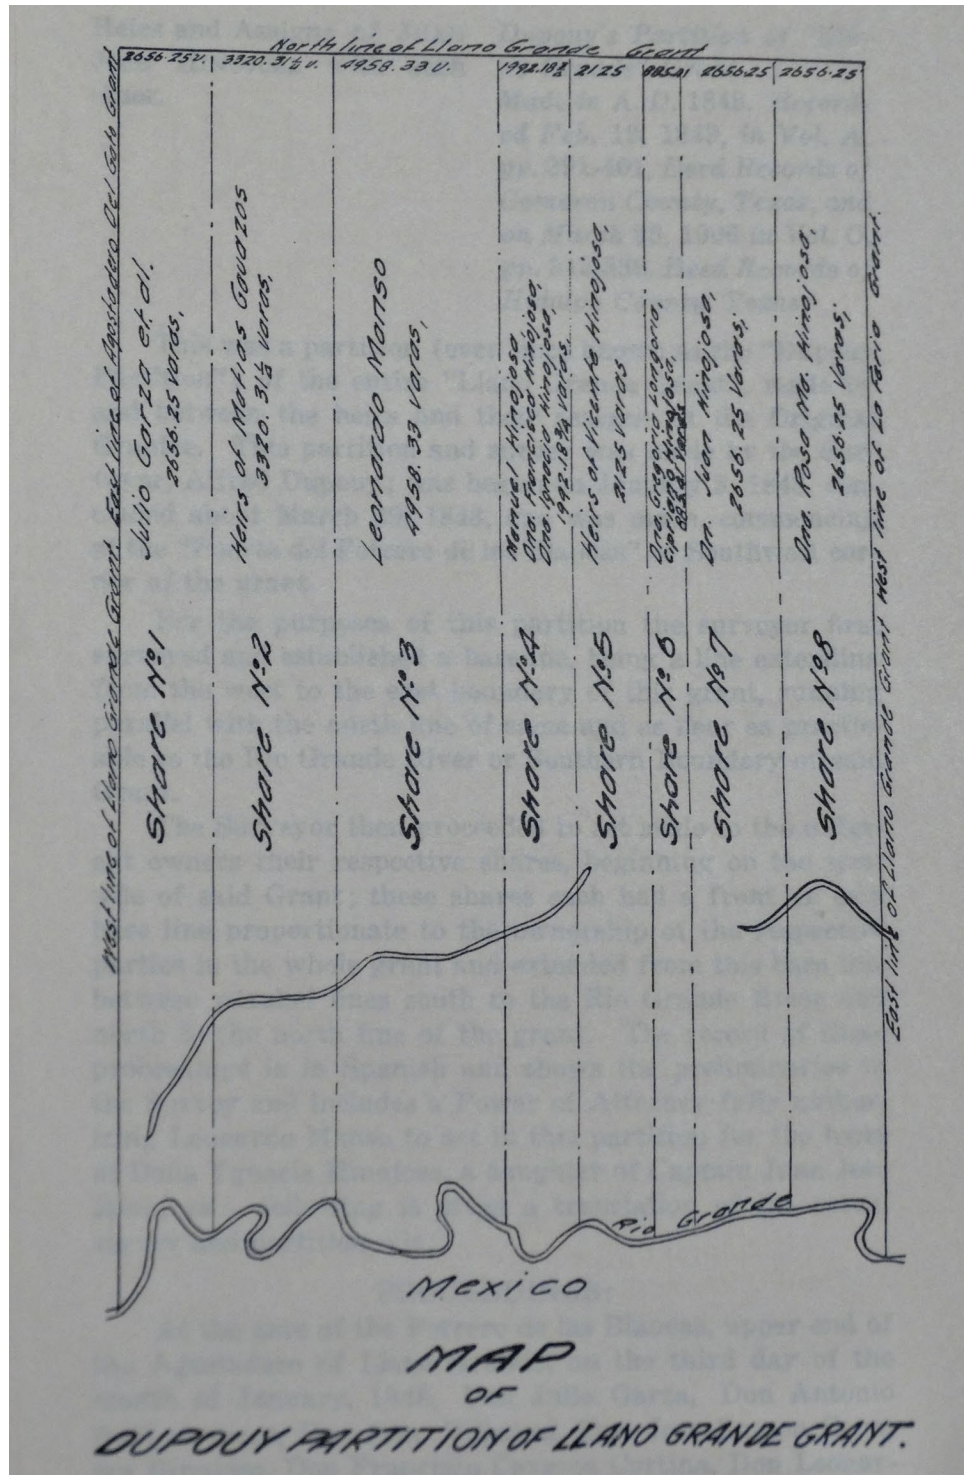 North line of Llano Grande Grant
2656.25 V.
3320.31½ V.
4958.33 V.
1992.18¾
2125
885.41
2656.25
2656.25
West line of Llano Grande Grant East line of Agostadero Del Gato Grant
Julio Garza et al.
2656.25 Varas,
Share Nº 1
Heirs of Matias Cavazos
3320.31½ Varas,
Share Nº 2
Leonardo Manso
4958.33 Varas,
Share Nº 3
Manuel Hinojosa
Dna. Francisca Hinojosa,
Dna. Ignacia Hinojosa,
1992.18¾ Varas,
Share Nº 4
Heirs of Vicente Hinojosa
2125 Varas
Share Nº 5
Dna. Gregoria Longoria,
Cipriano Hinojosa,
885.41 Varas
Share Nº 6
Dn. Juan Hinojosa,
2656.25 Varas,
Share Nº 7
Dna. Rosa Ma. Hinojosa,
2656.25 Varas,
Share Nº 8
East line of Llano Grande Grant West line of La Feria Grant.
Rio Grande
Mexico
MAP
OF
DUPOUY PARTITION OF LLANO GRANDE GRANT.